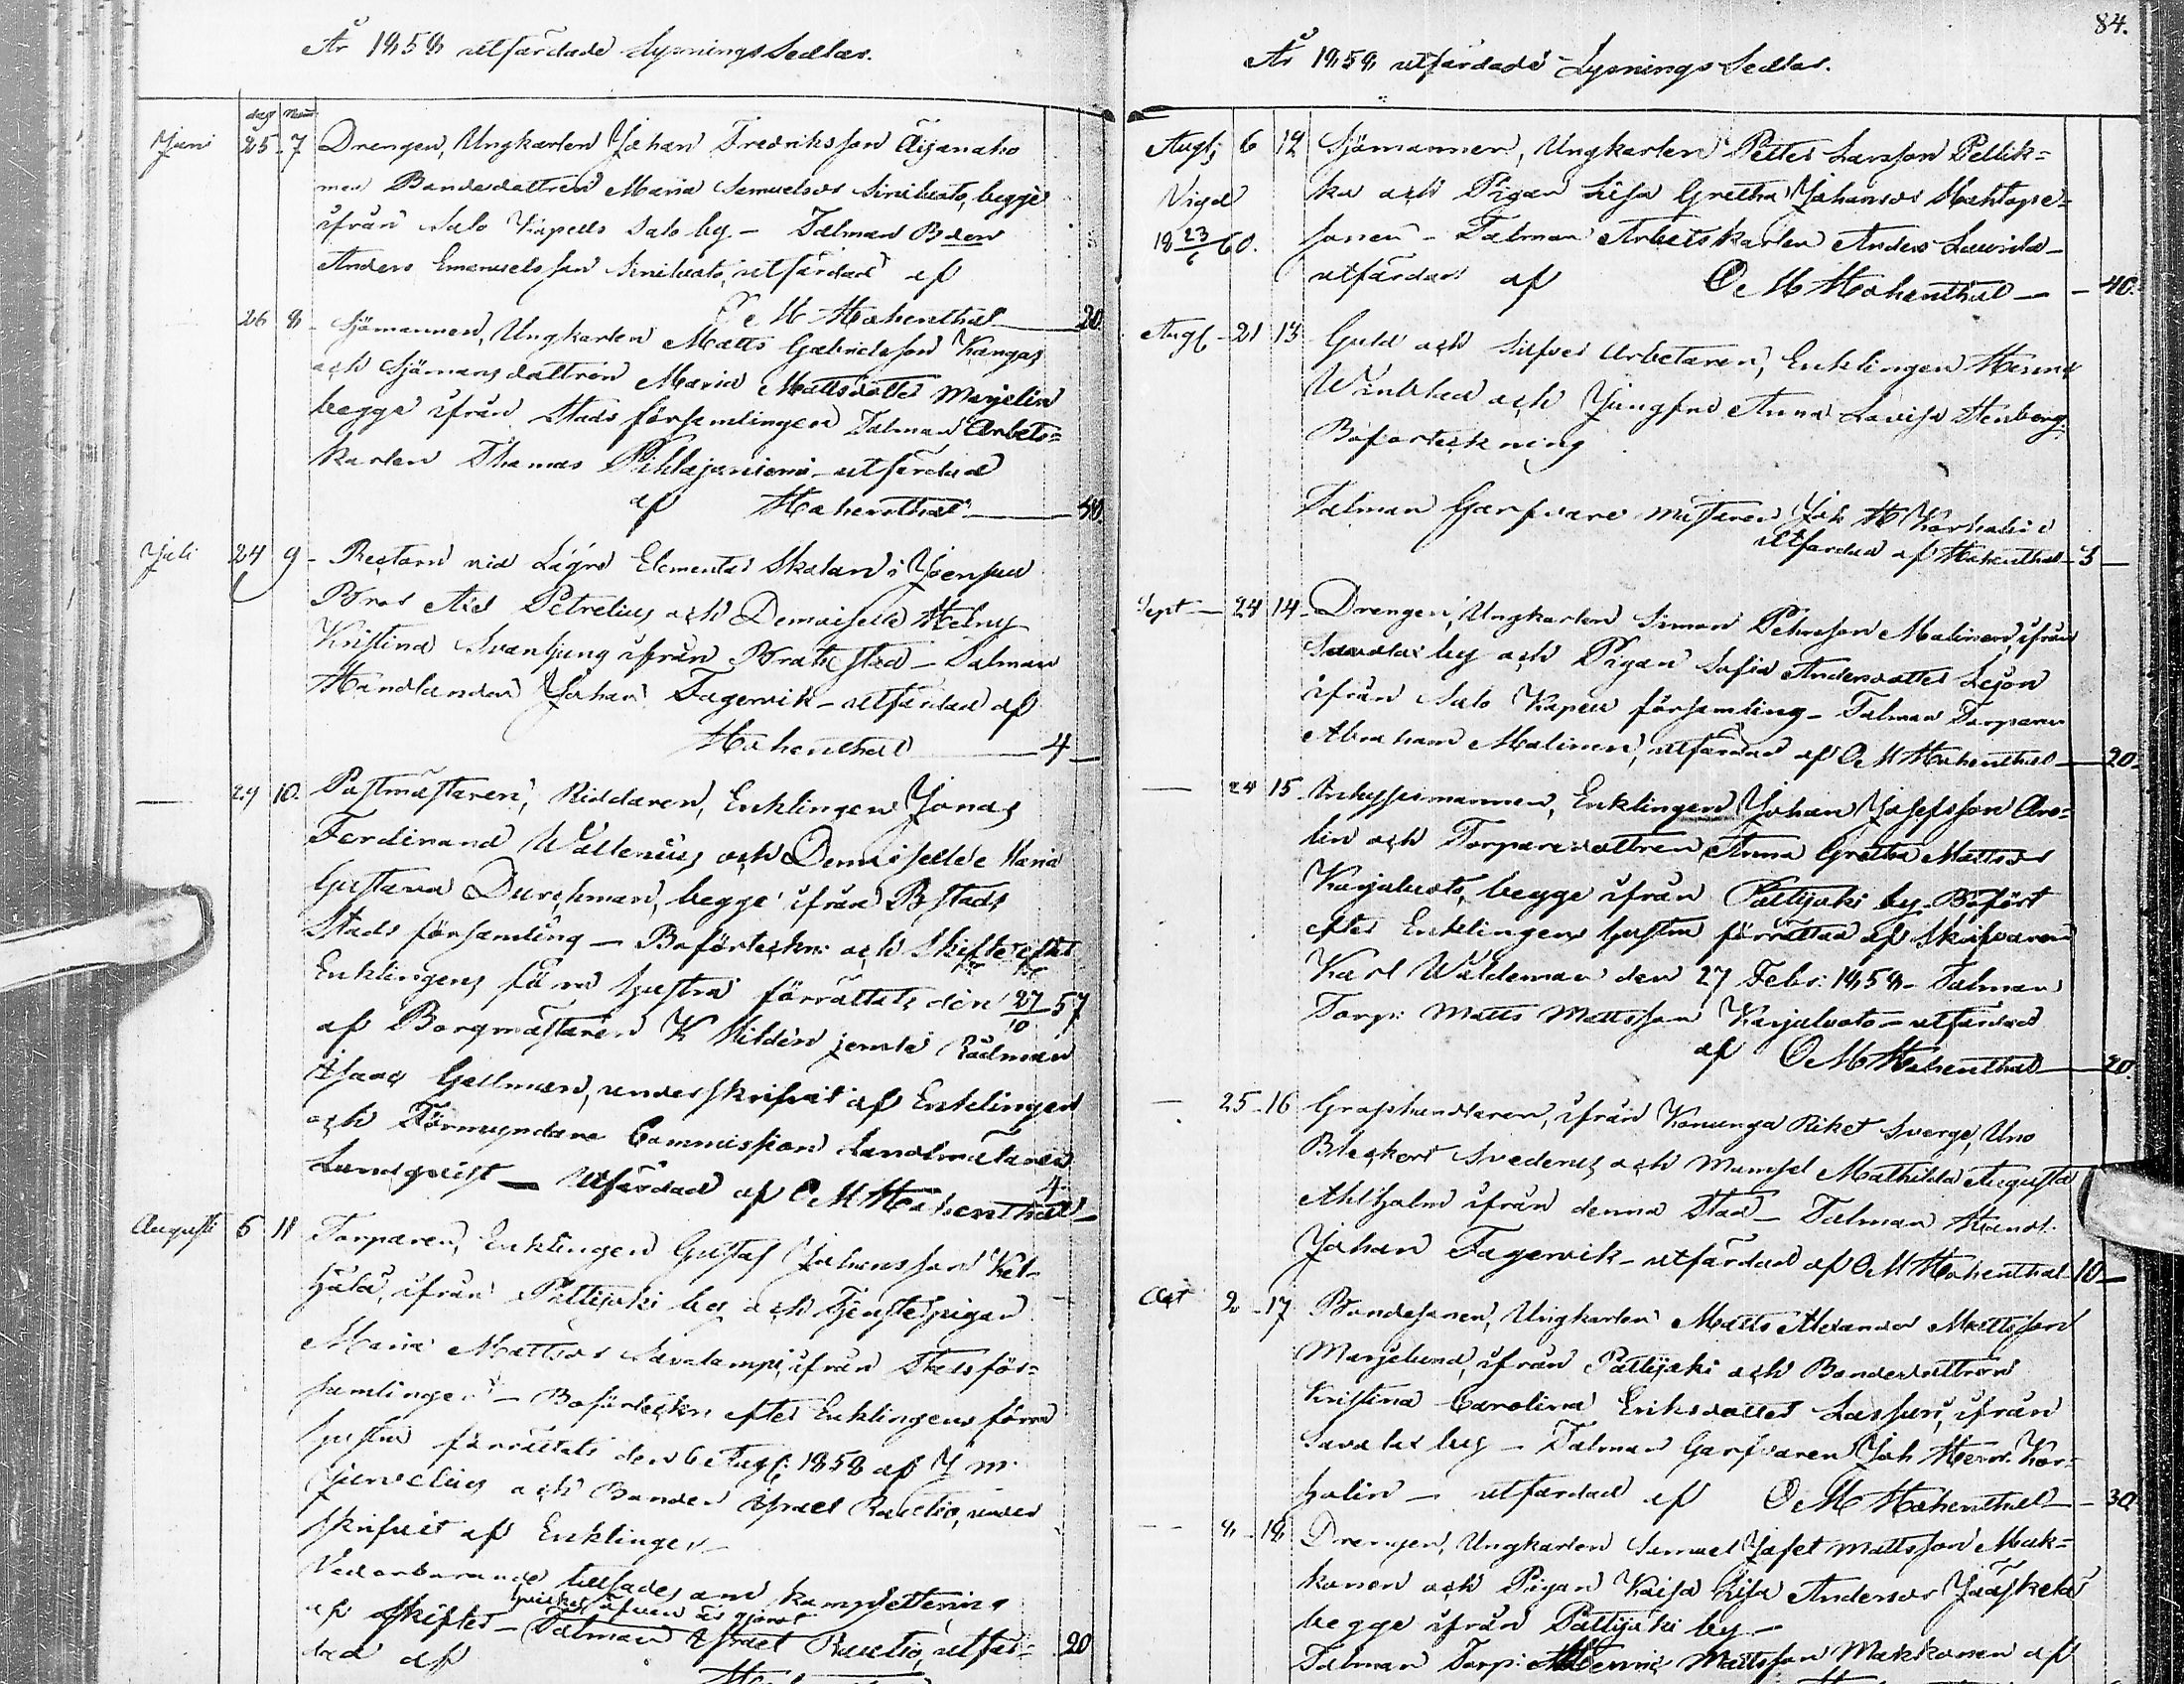 År 1858 utfärdade Lysnings Sedlar.
dag
Juni 25 7 Drengen, Ungkarlen Johan Fredriksson Äijänaho
med Bondedottren Maria Samuelsdr Siniluoto, begge
ifrån Salo Kapells Salo by - Talman Bden
Anders Emanuelsson Siniluoto, utfärdad af
O M Hohenthal 20
26 8 Sjömannen, Ungkarlen Matts Gabrielsson Kangas
och Sjömansdottren Maria Mattsdotter Marjelin
begge ifrån Stads församlingen Talman Arbets=
karlen Thomas Pihlajaniemi - utfärdad
af Hohenthal 40.
Juli 24 9 Rectorn vid Lägre Elementar Skolan i Joensuu
Petrelius och Demoiselle
Kristina Svanljung ifrån Brahestad - Talman
Handlanden Johan Fagervik - utfärdad af
Hohenthal 4
29 10. Postmästaren, Riddaren, Enklingen Jonas
Ferdinand Wallenius och Demoiselle Maria
Gustava Durchman, begge ifrån Bstads
Stads församling - Boförteckn: och Skifte efter
Enklingens förra hustru förrättats den 27/10 57
af Borgmästaren K Hildén jemte Rådman
Isaac Gellman, underskrifvit af Enklingen
och Förmyndare Commission Landmätaren
Lundqvist - Utfärdad af O M Hohenthal 4
Augusti 6 11 Torparen, Enklingen Gustaf Johansson Kel-
hälä, ifrån Pattijoki by och Tjenstepigan
Maria Mattsdr Savalampi, ifrån Stadsför=
samlingen - Boförteckn: efter Enklingens förra
hustru förrättats den 6 Aug: 1858 af J M
Junelius och Bonden Israel Rautio, under
skrifvit af Enklingen
Vederbörande tillsades om komplettering
hvilket äfven är gjordt
af skiftet - Talman Israel Rautio, utfär=
dad af 20
84.
År 1858 utfärdade Lysnings Sedlar.
Aug; 6 12 Sjömannen, Ungkarlen Petter Larsson Pellik=
Vigd ka och Pigan Lisa Gretha Johansdr Mahlape=
18 23/6 60. sonen - Talman Arbetskarlen Anders Laurila -
utfärdad af O M Hohenthal 40.
Aug: 21 13 Guld och Silfver Arbetaren, Enklingen
och Jungfru Anna Lovisa Stenberg
Boförteckning
Talman Garfvare mästaren Joh H Korholin
utfärdad af Hohenthal 3
Sept 24 14 Drengen, Ungkarlen Simon Pehrsson Malinen, ifrån
Savolax by och Pigan Sofia Andersdotter Lejon
ifrån Salo Kapell församling - Talman Torparen
Abraham Malinen, utfärdad af O M Hohenthal 20.
24 15 Inhyssesmannen, Enklingen Johan Josefsson Aro=
lin och Torparedottren Anna Gretha Mattsdr
Karjaluoto, begge ifrån Pattijoki by. BoFört
efter Enklingens hustru förrättad af Skrifvaren
Karl Waldeman den 27 Febr: 1858 - Talman
Torp: Matts Mattsson Karjaluoto - utfärdad
af O M Hohenthal 20.
25 16 Grosshandlaren, ifrån Konunga Riket Sverge, Uno
Bleckert Svedens och Mamsel Mathilda Augusta
Ahlholm ifrån denna Stad - Talman Handl.
Johan Fagervik - utfärdad af O M Hohenthal 10
Oct 2 17 Bondesonen, Ungkarlen Matts Alexander Mattsson
Marjelund, ifrån Pattijoki och Bondedottren
Kristina Carolina Eriksdotter Lassuri, ifrån
Savolax by - Talman Garfvaren Joh Herm. Kor=
holin - utfärdad af O M Hohenthal 30
8 18 Drengen, Ungkarlen Samuel Jafet Mattsson Mak=
konen och Pigan Kaisa Lisa Andersdr Jääskelä
begge ifrån Pattijoki by -
Talman Torp: Mattsson Makkonen af